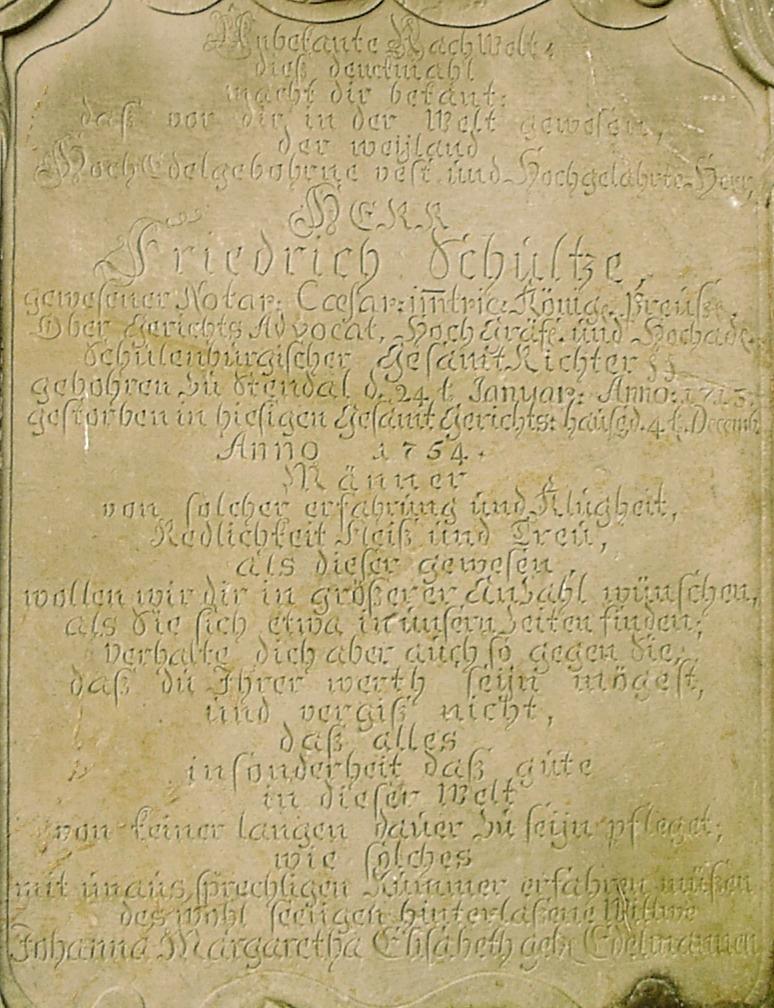 Unbekante NachWelt,
dieß denckmahl
macht dir bekant:
daß vor dir in der Welt gewesen,
der weyland
HochEdelgebohrne vest. und Hochgelahrte Herr,
HERR
Friedrich Schültze,
gewesener Notar: Cæsar: im̅tric: Königl. Preuß.
Ober Gerichts Advocat, HochGräfl. und Hochadl.
Schulenburgischer GesamtRichter
gebohren zu Stendal d. 24 t. Januar: Anno: 1713.
gestorben in hiesigen Gesamt Gerichts: hause d. 4 t. Decemb.
Anno 1754.
Männer
von solcher erfahrung und Klugheit,
Redlichkeit Fleiß und Treu,
als dieser gewesen,
wollen wir dir in größerer Anzahl wünschen,
als Sie sich etwa in unsern Zeiten finden;
verhalte dich aber auch so gegen Sie,
daß du Ihrer werth seyn mögest,
und vergiß nicht,
daß alles
insonderheit daß gute
in dieser Welt
von keiner langen dauer zu seyn pfleget;
wie solches
mit unaussprechligen Kummer erfahren müßen
des wohl seeligen hinterlaßene Wittwe
Johanna Margaretha Elisabeth geb: Edelmannin